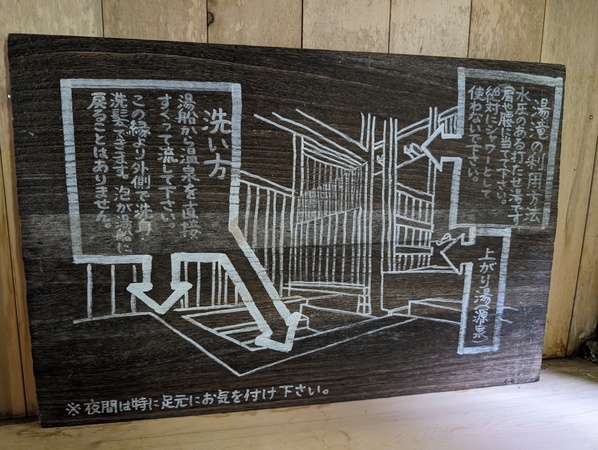 湯滝の利用方法
水圧のある打たせ湯です。
肩や腰に当て下さい。
絶対にシャワーとして
使わないで下さい。
上がり湯源泉
洗い方
湯船から温泉を直接
すくって流して下さい。
この縁より外側で洗身・
洗髪できます。泡が浴槽に
戻ることはありません。
※夜間は特に足元にお気を付け下さい。